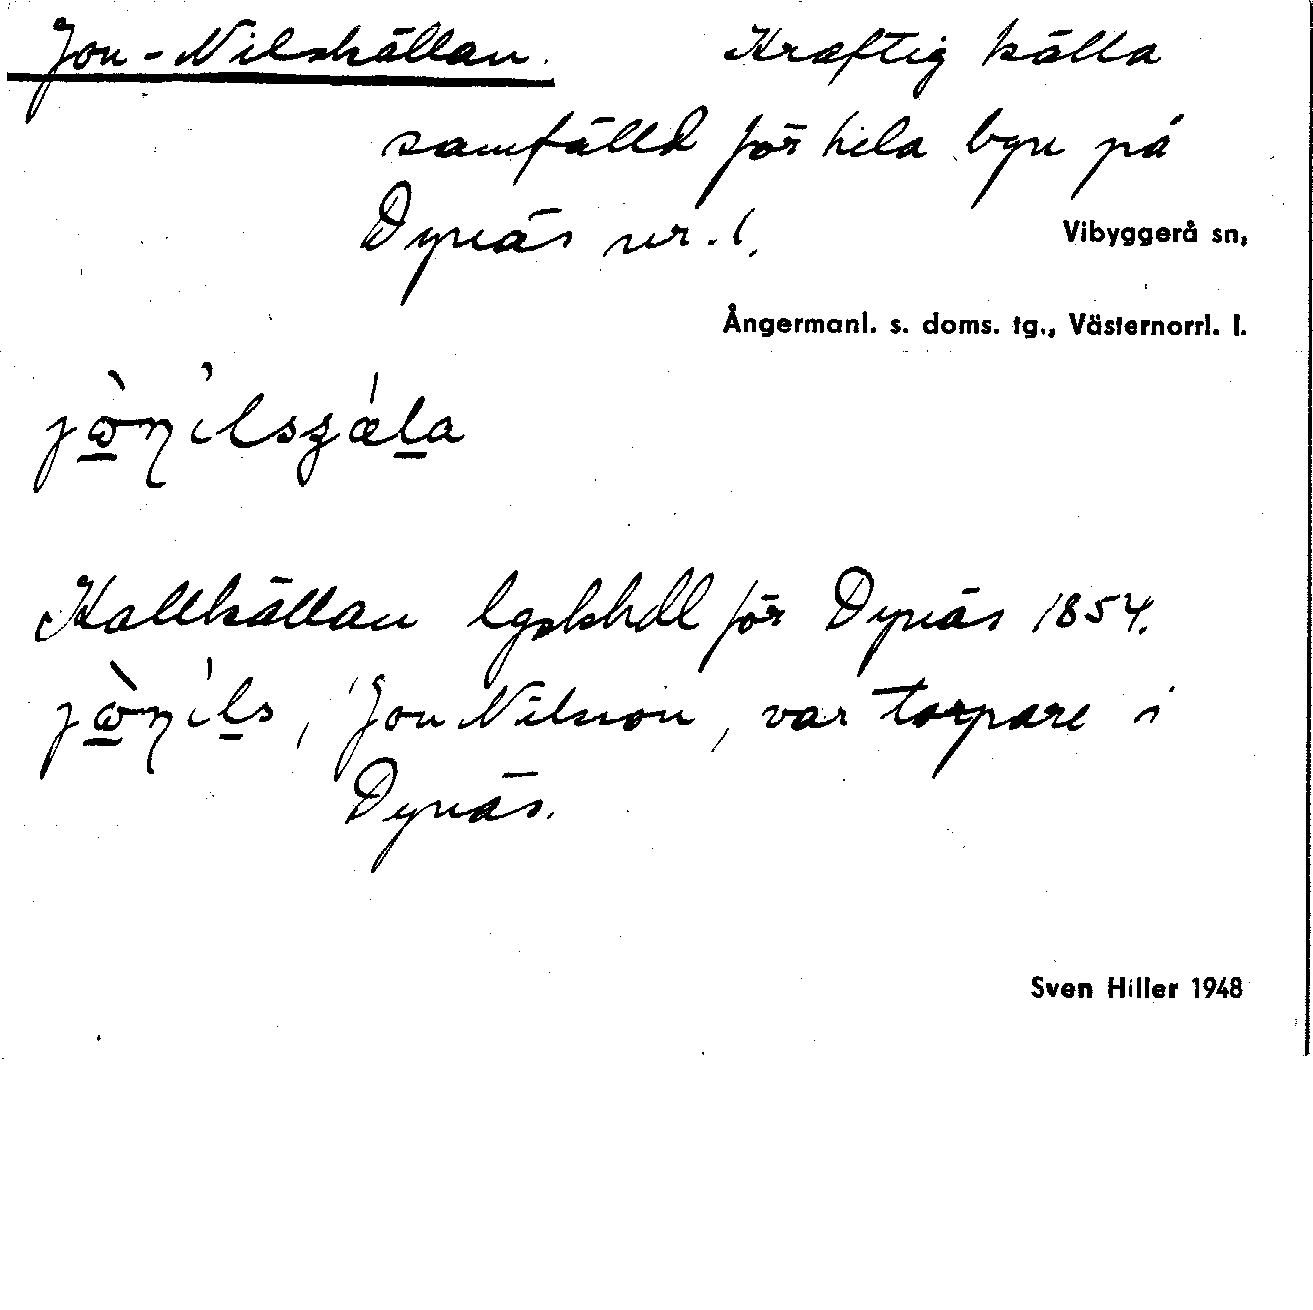 Jon-Nilskällan. Kraftig källa
samfälld för hela byn på
Dynäs nr. 1.
Vibyggerå sn,
Ångermanl. s. doms. tg., Västernorrl. l.
Kallkällan lgskhdl för Dynäs 1854.
, Jon Nilsson, var torpare i
Dynäs.
Sven Hiller 1948